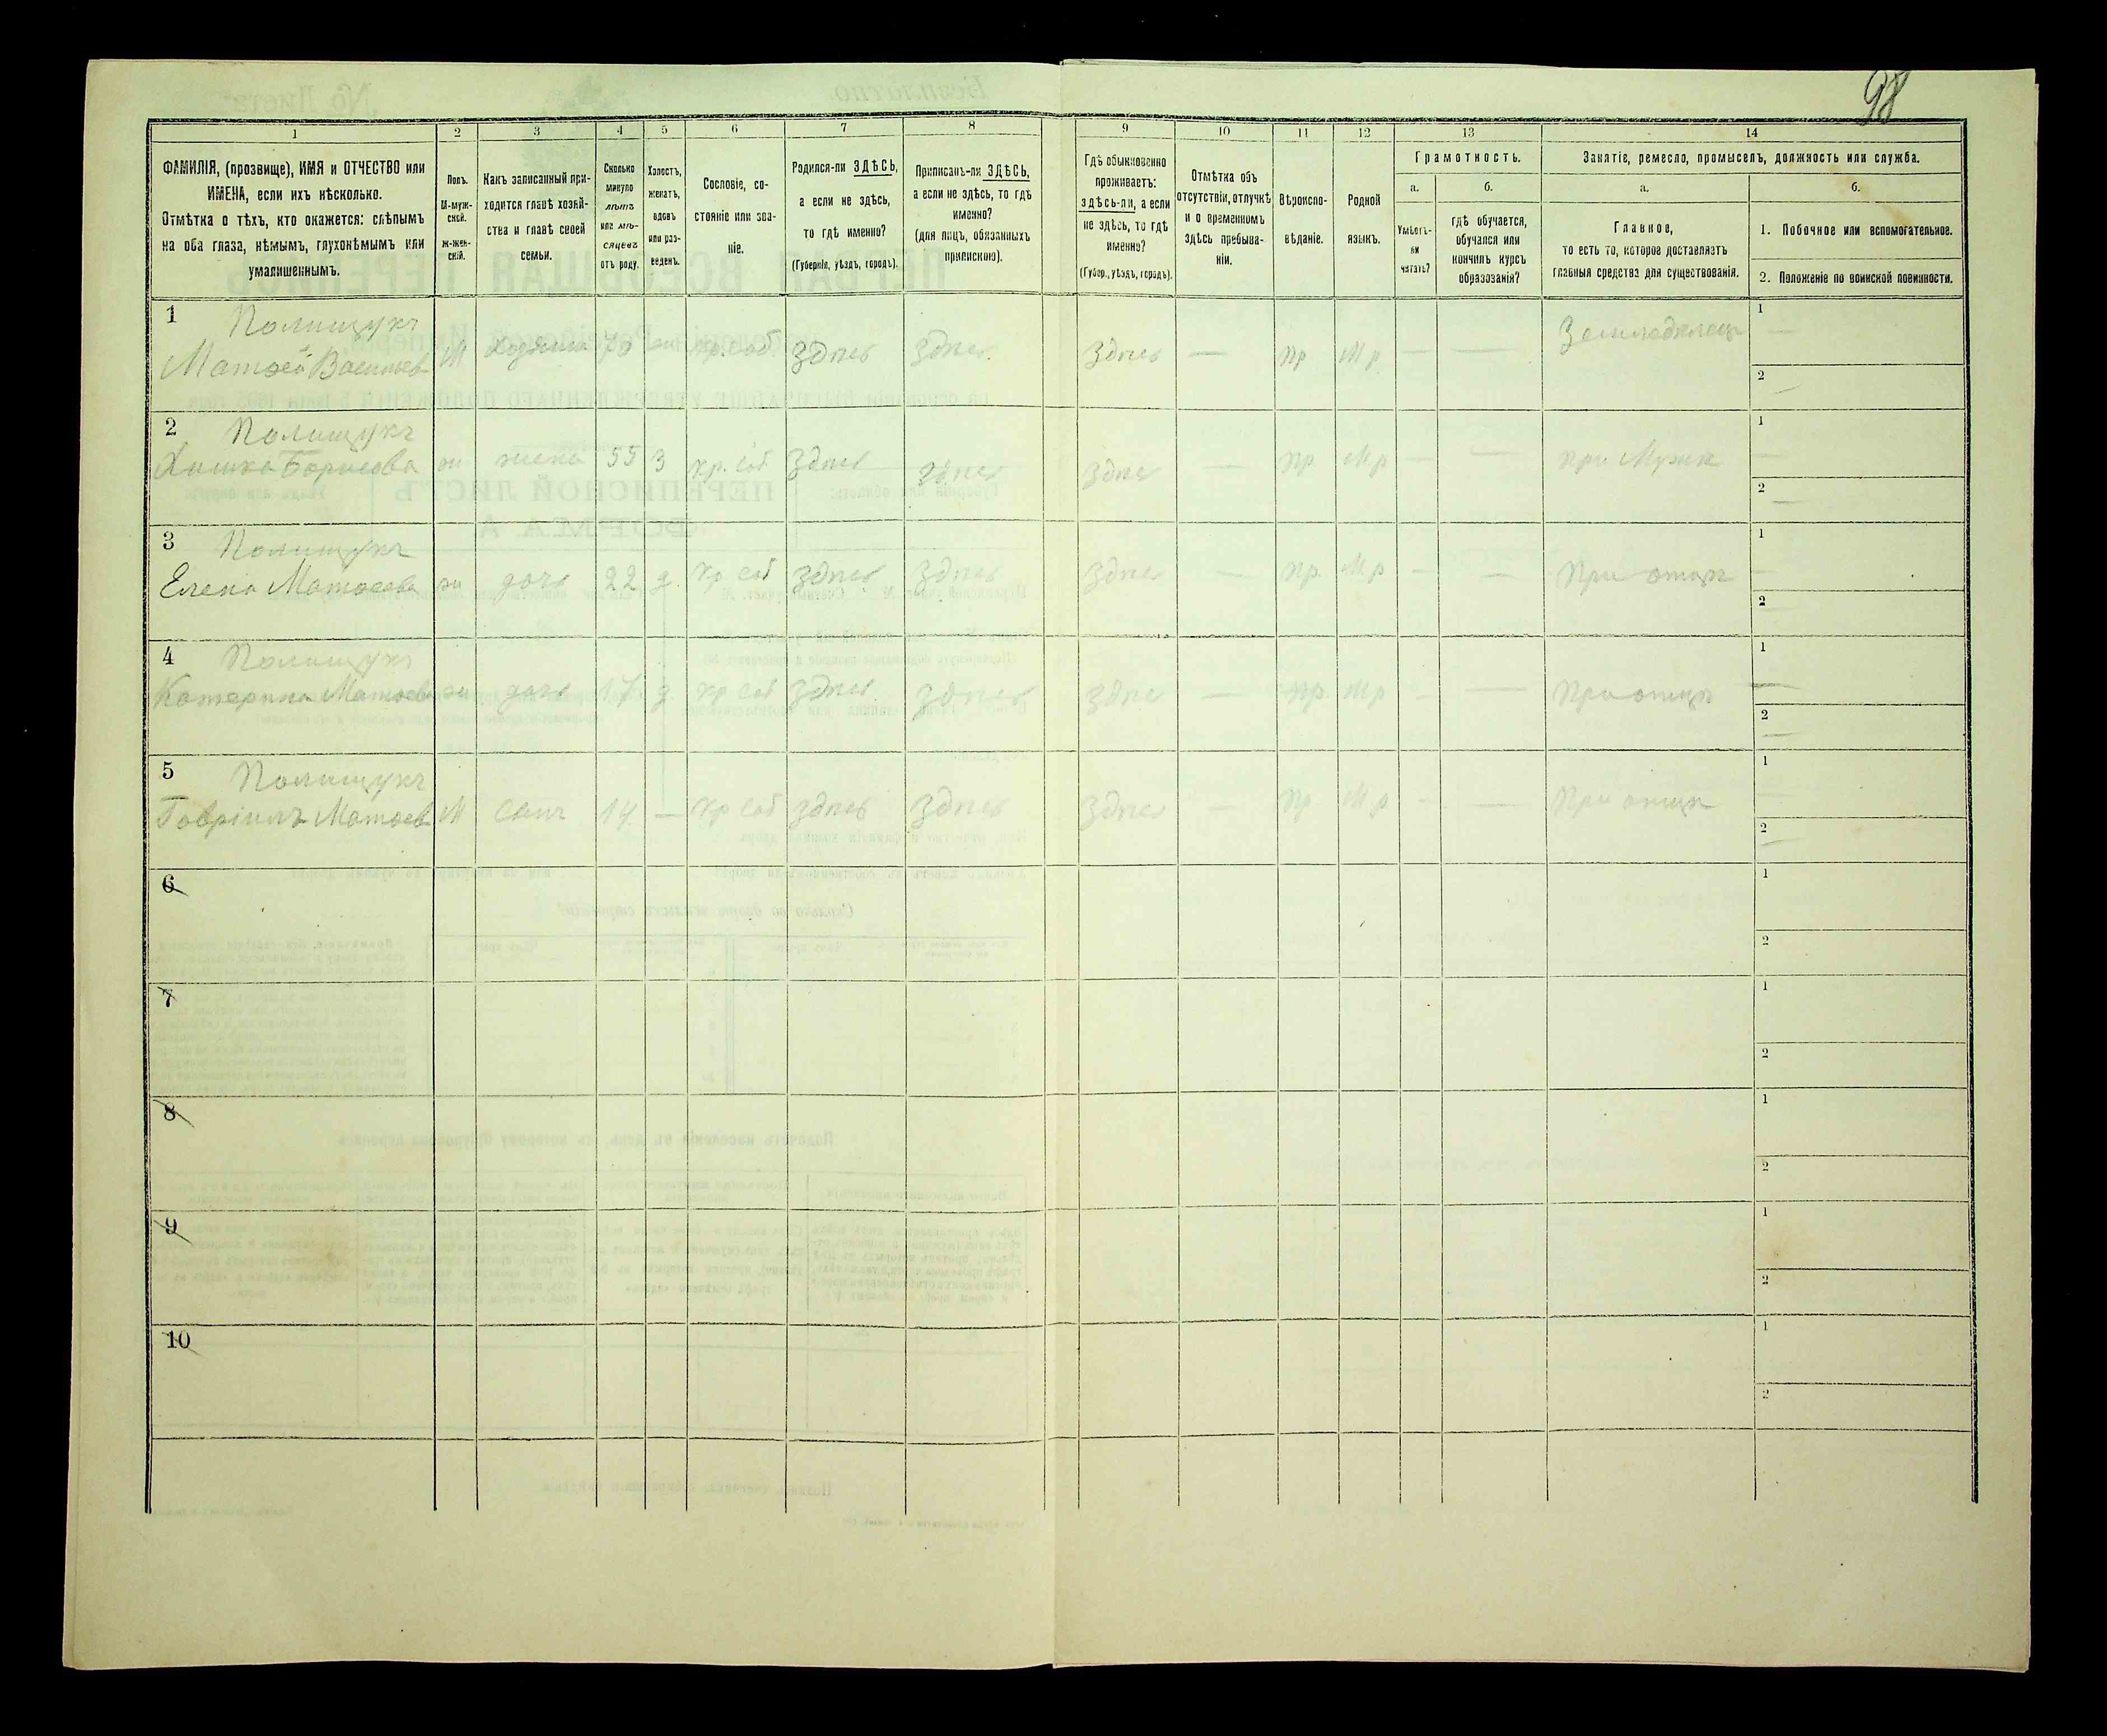 98
1 2 3 4 5 6 7 8 9 10 11 12 13 14
ФАМИЛІЯ, (прозвище), ИМЯ и ОТЧЕСТВО или
ИМЕНА, если ихъ нѣсколько.
Отмѣтка о тѣхъ, кто окажется: слѣпымъ
на оба глаза, нѣмымъ, глухонѣмымъ или
умалишеннымъ.
Полъ.
М-муж-
ской.
Ж-жен-
скій.
Какъ записанный при-
ходится главѣ хозяй-
ства и главѣ своей
семьи.
Сколько
минуло
лѣтъ
или мѣ-
сяцевъ
отъ роду.
Холостъ,
женатъ,
вдовъ
или раз-
веденъ.
Сословіе, со-
стояніе или зва-
ніе.
Родился-ли ЗДѢСЬ,
а если не здѣсь,
то гдѣ именно?
(Губернія, уѣздъ, городъ).
Приписанъ-ли ЗДѢСЬ,
а если не здѣсь, то гдѣ
именно?
(для лицъ, обязанныхъ
припискою).
Гдѣ обыкновенно
проживаетъ:
здѣсь-ли, а если
не здѣсь, то гдѣ
именно?
(Губер., уѣздъ, городъ).
Отмѣтка объ
отсутствіи, отлучкѣ
и о временномъ
здѣсь пребыва-
ніи.
Вѣроиспо-
вѣданіе.
Родной
языкъ.
Грамотность.
а.
Умѣетъ-
ли
читать?
б.
гдѣ обучается,
обучался или
кончилъ курсъ
образованія?
Занятіе, ремесло, промыселъ, должность или служба.
а.
Главное,
то есть то, которое доставляетъ
главныя средства для существованія.
б.
1. Побочное или вспомогательное.
2. Положеніе по воинской повинности.
1 Полищукъ
Матвей Васильев М хозяинъ 70 кр. соб здѣсь здѣсь здѣсь — пр М р — — Земледѣлецъ 1 —
2 —
2 Полищукъ
Химка Борисова ж жена 55 з кр. соб здѣсь здѣсь здѣсь — пр М р — — при Мужѣ 1 —
2 —
3 Полищукъ
Елена Матвеева ж дочь 22 д. кр соб здѣсь здѣсь здѣсь — пр. М р — — При отцѣ 1 —
2 —
4 Полищукъ
Катерина Матвеева ж дочь 17 д. кр соб здѣсь здѣсь здѣсь — пр. М р — — При отцѣ 1 —
2 —
5 Полищукъ
Гавріилъ Матвеев М сынъ 14 — кр соб здѣсь здѣсь здѣсь — пр М р — — При отцѣ 1 —
2 —
6 1
2
7 1
2
8 1
2
9 1
2
10 1
2